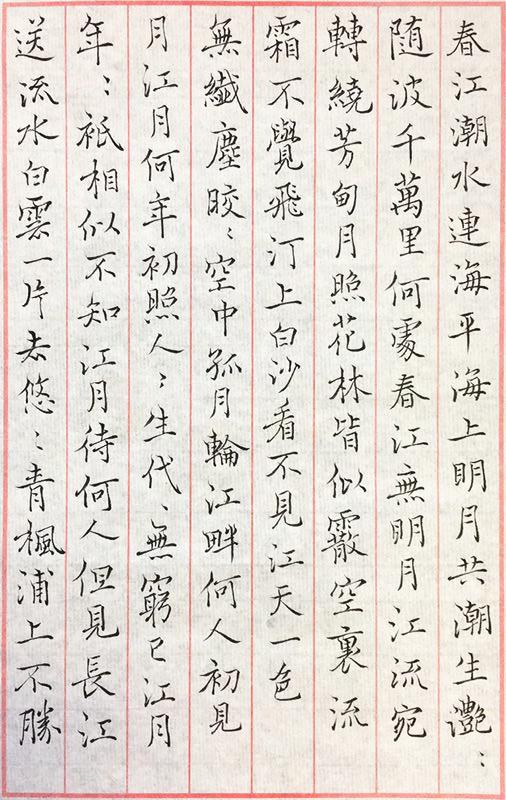 春江潮水連海平海上明月共潮生灔：
隨波千萬里何處春江無明月江流宛
轉繞芳甸月照花林皆似霰空裏流
霜不覺飛汀上白沙看不見江天一色
無纖塵皎：空中孤月輪江畔何人初見
月江月何年初照人：生代：無窮已江月
年：衹相似不知江月待何人但見長江
送流水白雲一片去悠：青楓浦上不勝